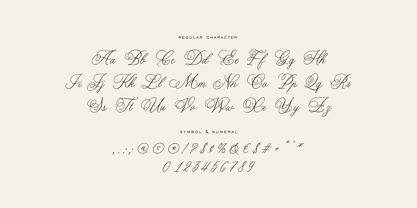 REGULAR CHARACTER
Aa Bb Cc Dd Ee Ff Gg Hh
Ii Jj Kk Ll Mm Nn Oo Pp Qq Rr
Ss Tt Uu Vv Ww Xx Yy Zz
SYMBOL & NUMERAL
, . : ; @ © ® / ? $ ¢ % & £ $ # + " ' *
0 1 2 3 4 5 6 7 8 9